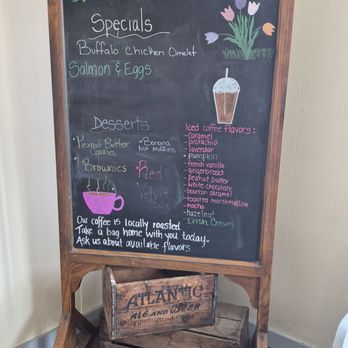 Specials
Buffalo Chicken Omelet
Salmon & Eggs
Desserts
• Peanut Butter
Cookies
• Banana
Nut Muffins
• Brownies
• Red
Velvet
Cake
Iced coffee flavors:
- caramel
- pistachio
- lavendar
- pumpkin
- french vanilla
- gingerbread
- peanut butter
- white chocolate
- bourbon caramel
- toasted marshmallow
- mocha
- hazelnut
- Irish Cream
Our coffee is locally roasted
Take a bag home with you today
Ask us about available flavors
ATLANTIC
ALE AND BEER